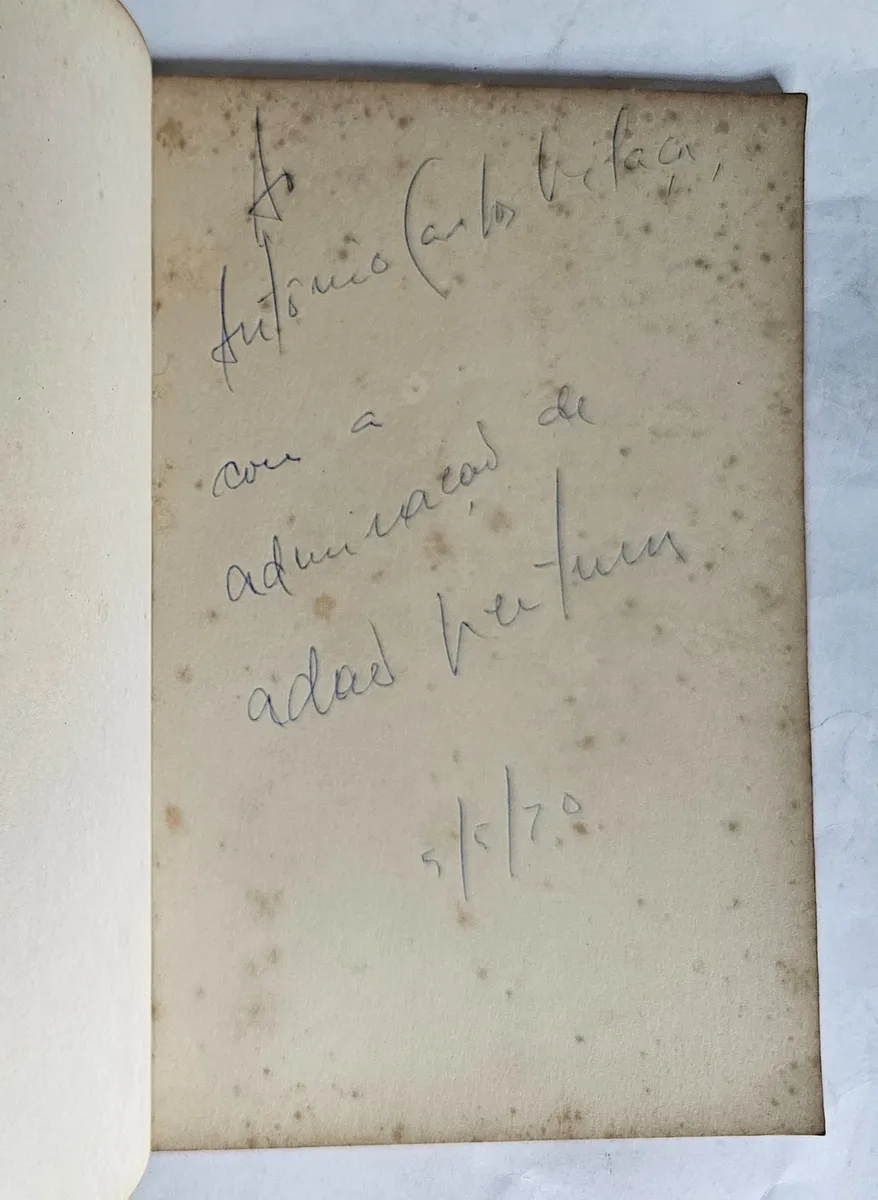 Ao
Antônio Carlos Vilaça,
com a
admiração de
adão ventura
5/5/70